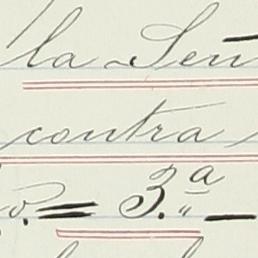 la Señ
contra
o. = 3.ª —